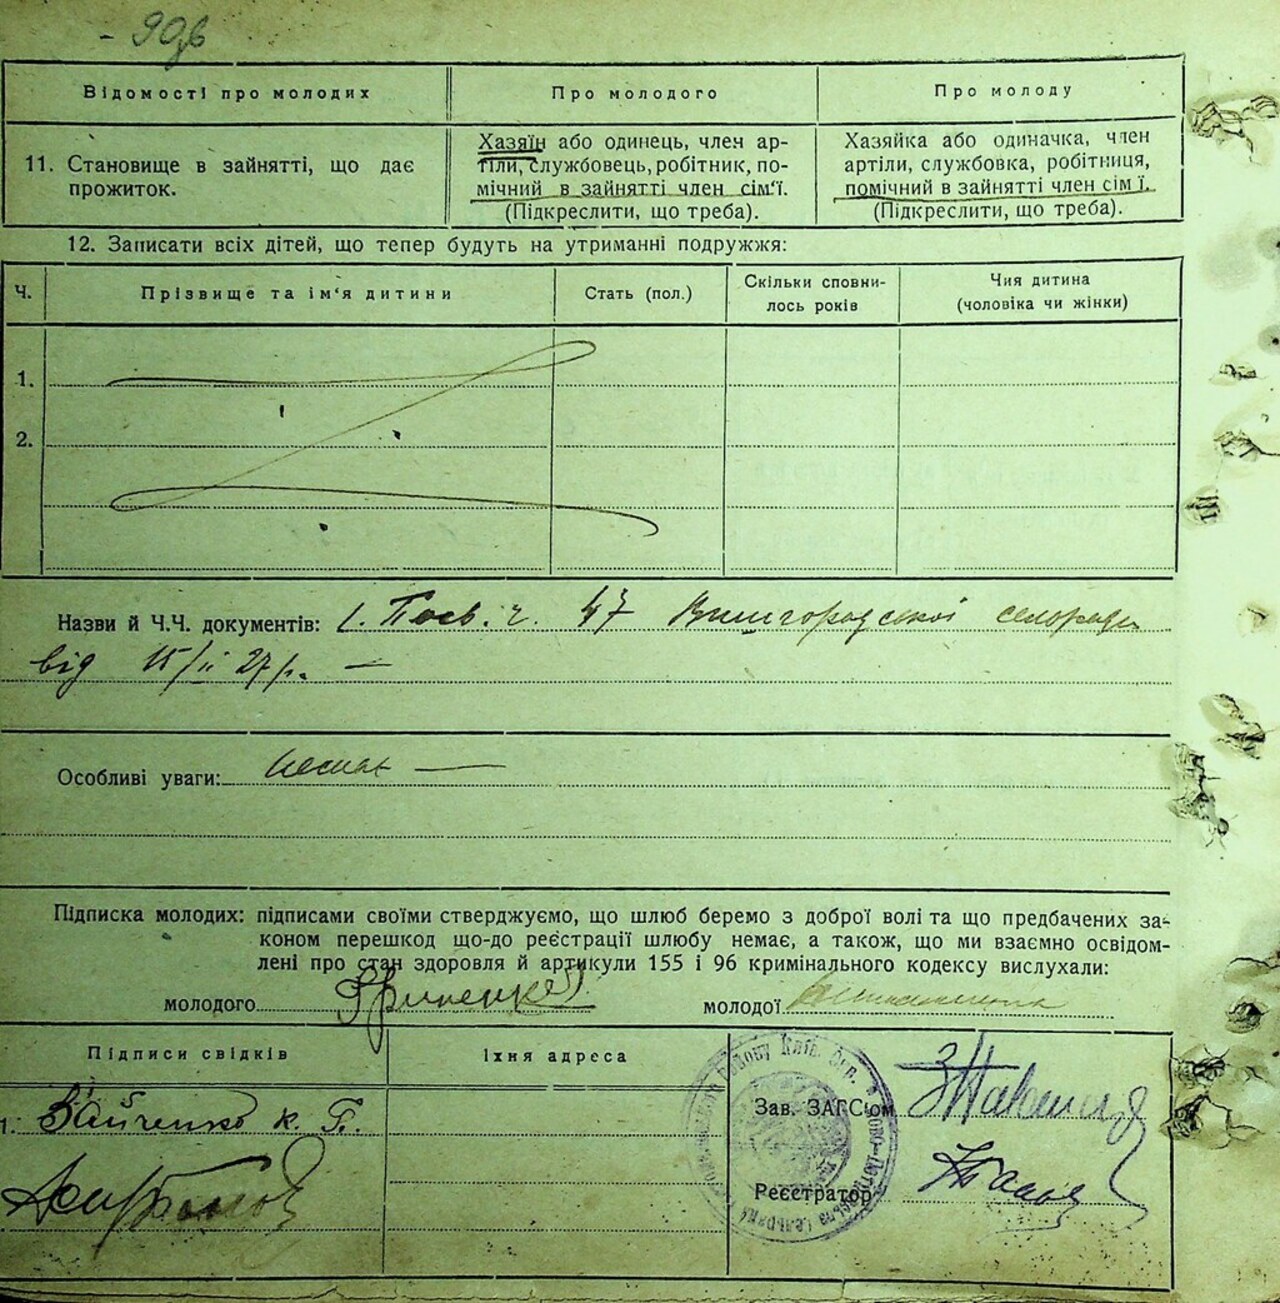 - 90зв
Відомості про молодих
Про молодого
Про молоду
11. Становище в зайнятті, що дає
прожиток.
Хазяїн або одинець, член ар-
тіли, службовець, робітник, по-
мічний в зайнятті член сім'ї.
(Підкреслити, що треба).
Хазяйка або одиначка, член
артіли, службовка, робітниця,
помічний в зайнятті член сім'ї.
(Підкреслити, що треба).
12. Записати всіх дітей, що тепер будуть на утриманні подружжя:
Ч.
Прізвище та ім'я дитини
Стать (пол.)
Скільки сповни-
лось років
Чия дитина
(чоловіка чи жінки)
1.
2.
Назви й Ч.Ч. документів: 1. Посв. ч. 47 Вишгородської селоради
від 15/II 27 р. —
Особливі уваги: немає —
Підписка молодих: підписами своїми стверджуємо, що шлюб беремо з доброї волі та що предбачених за-
коном перешкод що-до реєстрації шлюбу немає, а також, що ми взаємно освідом-
лені про стан здоровля й артикули 155 і 96 кримінального кодексу вислухали:
молодого
молодої
Підписи свідків
Їхня адреса
1. Зайченко к. Г.
Зав. ЗАГС'ом
Реєстратор